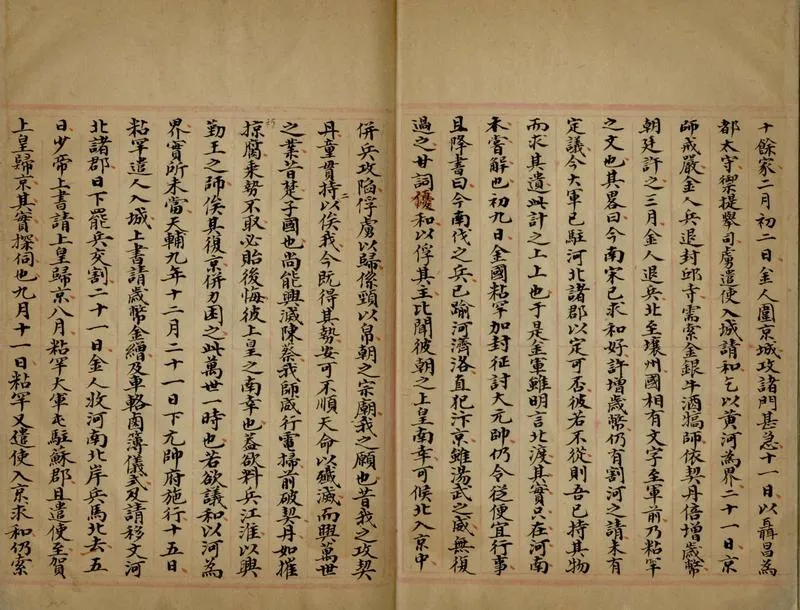 十餘家二月初二日金人圍京城攻諸門甚急十一日以聶昌為
都太守禦提舉司虜遣使入城請和乞以黃河為界二十一日京
師戒嚴金人兵退封邱寺需索金銀牛酒犒師依契丹倍增歲幣
朝廷許之三月金人退兵北至壤州國相有文字至軍前乃粘罕
之文也其畧曰今南宋已求和好許增歲幣仍有割河之請未有
定議今大軍已駐河北諸郡以定可否彼若不從則吾已持其物
而求其遺此計之上上也于是金軍雖明言北渡其實只在河南
未嘗解也初九日金國粘罕加封征討大元帥仍令從便宜行事
且降書曰今南伐之兵已踰河濟洛直犯汴京雖湯武之威無復
過之廿詞優和以俘其主比聞彼朝之上皇南幸可候北入京中
併兵攻陷俘虜以歸係頸以帛朝之宗廟我之願也昔我之攻契
丹童貫持二以俟我今既得其勢安可不順天命以殲滅而興萬世
之業昔楚子國也尚能興滅陳蔡我師威行電掃前破契丹如摧
掠腐朽來勢不取必貽後悔彼上皇之南幸也蓋欲料兵江淮以興
勤王之師俟其復京併力困之此萬世一時也若欲議和以河為
界實所未當天輔九年十二月二十一日下元帥府施行十五日
粘罕遣人入城上書請歲幣金繒及車輅鹵簿儀式及請移文河
北諸郡日下罷兵交割二十一日金人收河南北岸兵馬北去五
日少帝上書請上皇歸京八月粘罕大軍屯駐蘇郡且遣使至賀
上皇歸京其實探伺也九月十一日粘罕又遣使入京求和仍索